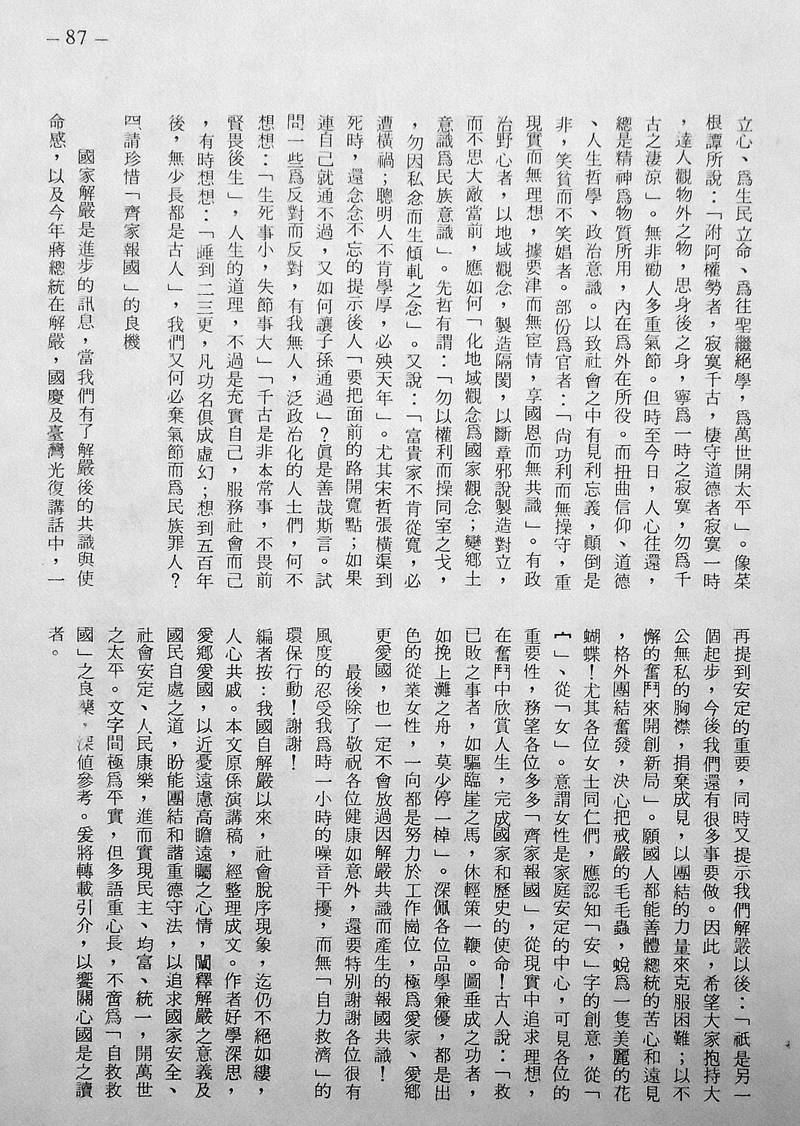 — 87 —
立心、爲生民立命、爲往聖繼絕學，爲萬世開太平」。像菜
根譚所說：「附阿權勢者，寂寞千古，棲守道德者寂寞一時
，達人觀物外之物，思身後之身，寧爲一時之寂寞，勿爲千
古之淒涼」。無非勸人多重氣節。但時至今日，人心往還，
總是精神爲物質所用，內在爲外在所役。而扭曲信仰、道德
、人生哲學、政治意識。以致社會之中有見利忘義，顚倒是
非，笑貧而不笑娼者。部份爲官者：「尙功利而無操守，重
現實而無理想，據要津而無宦情，享國恩而無共識」。有政
治野心者，以地域觀念，製造隔閡，以斷章邪說製造對立，
而不思大敵當前，應如何「化地域觀念爲國家觀念；變鄉土
意識爲民族意識」。先哲有謂：「勿以權利而操同室之戈，
，勿因私念而生傾軋之念」。又說：「富貴家不肯從寬，必
遭橫禍；聰明人不肯學厚，必殀天年」。尤其宋哲張橫渠到
死時，還念念不忘的提示後人「要把面前的路開寬點；如果
連自己就通不過，又如何讓子孫通過」？眞是善哉斯言。試
問一些爲反對而反對，有我無人，泛政治化的人士們，何不
想想：「生死事小，失節事大」「千古是非本常事，不畏前
賢畏後生」，人生的道理，不過是充實自己，服務社會而已
，有時想想：「睡到二三更，凡功名俱成虛幻；想到五百年
後，無少長都是古人」，我們又何必棄氣節而爲民族罪人？
四、請珍惜「齊家報國」的良機
國家解嚴是進步的訊息，當我們有了解嚴後的共識與使
命感，以及今年蔣總統在解嚴，國慶及臺灣光復講話中，一
再提到安定的重要，同時又提示我們解嚴以後：「祇是另一
個起步，今後我們還有很多事要做。因此，希望大家抱持大
公無私的胸襟，捐棄成見，以團結的力量來克服困難；以不
懈的奮鬥來開創新局」。願國人都能善體總統的苦心和遠見
，格外團結奮發，決心把戒嚴的毛毛蟲，蛻爲一隻美麗的花
蝴蝶！尤其各位女士同仁們，應認知「安」字的創意，從「
宀」、從「女」。意謂女性是家庭安定的中心，可見各位的
重要性，務望各位多多「齊家報國」，從現實中追求理想，
在奮鬥中欣賞人生，完成國家和歷史的使命！古人說：「救
已敗之事者，如驅臨崖之馬，休輕策一鞭。圖垂成之功者，
如挽上灘之舟，莫少停一棹」。深佩各位品學兼優，都是出
色的從業女性，一向都是努力於工作崗位，極爲愛家、愛鄉
更愛國，也一定不會放過因解嚴共識而產生的報國共識！
最後除了敬祝各位健康如意外，還要特別謝謝各位很有
風度的忍受我爲時一小時的噪音干擾，而無「自力救濟」的
環保行動！謝謝！
編者按：我國自解嚴以來，社會脫序現象，迄仍不絕如縷，
人心共戚。本文原係演講稿，經整理成文。作者好學深思，
愛鄉愛國，以近憂遠慮高瞻遠矚之心情，闡釋解嚴之意義及
國民自處之道，盼能團結和諧重德守法，以追求國家安全、
社會安定、人民康樂，進而實現民主、均富、統一，開萬世
之太平。文字間極爲平實，但多語重心長，不啻爲「自救救
國」之良藥，深値參考。爰將轉載引介，以饗關心國是之讀
者。